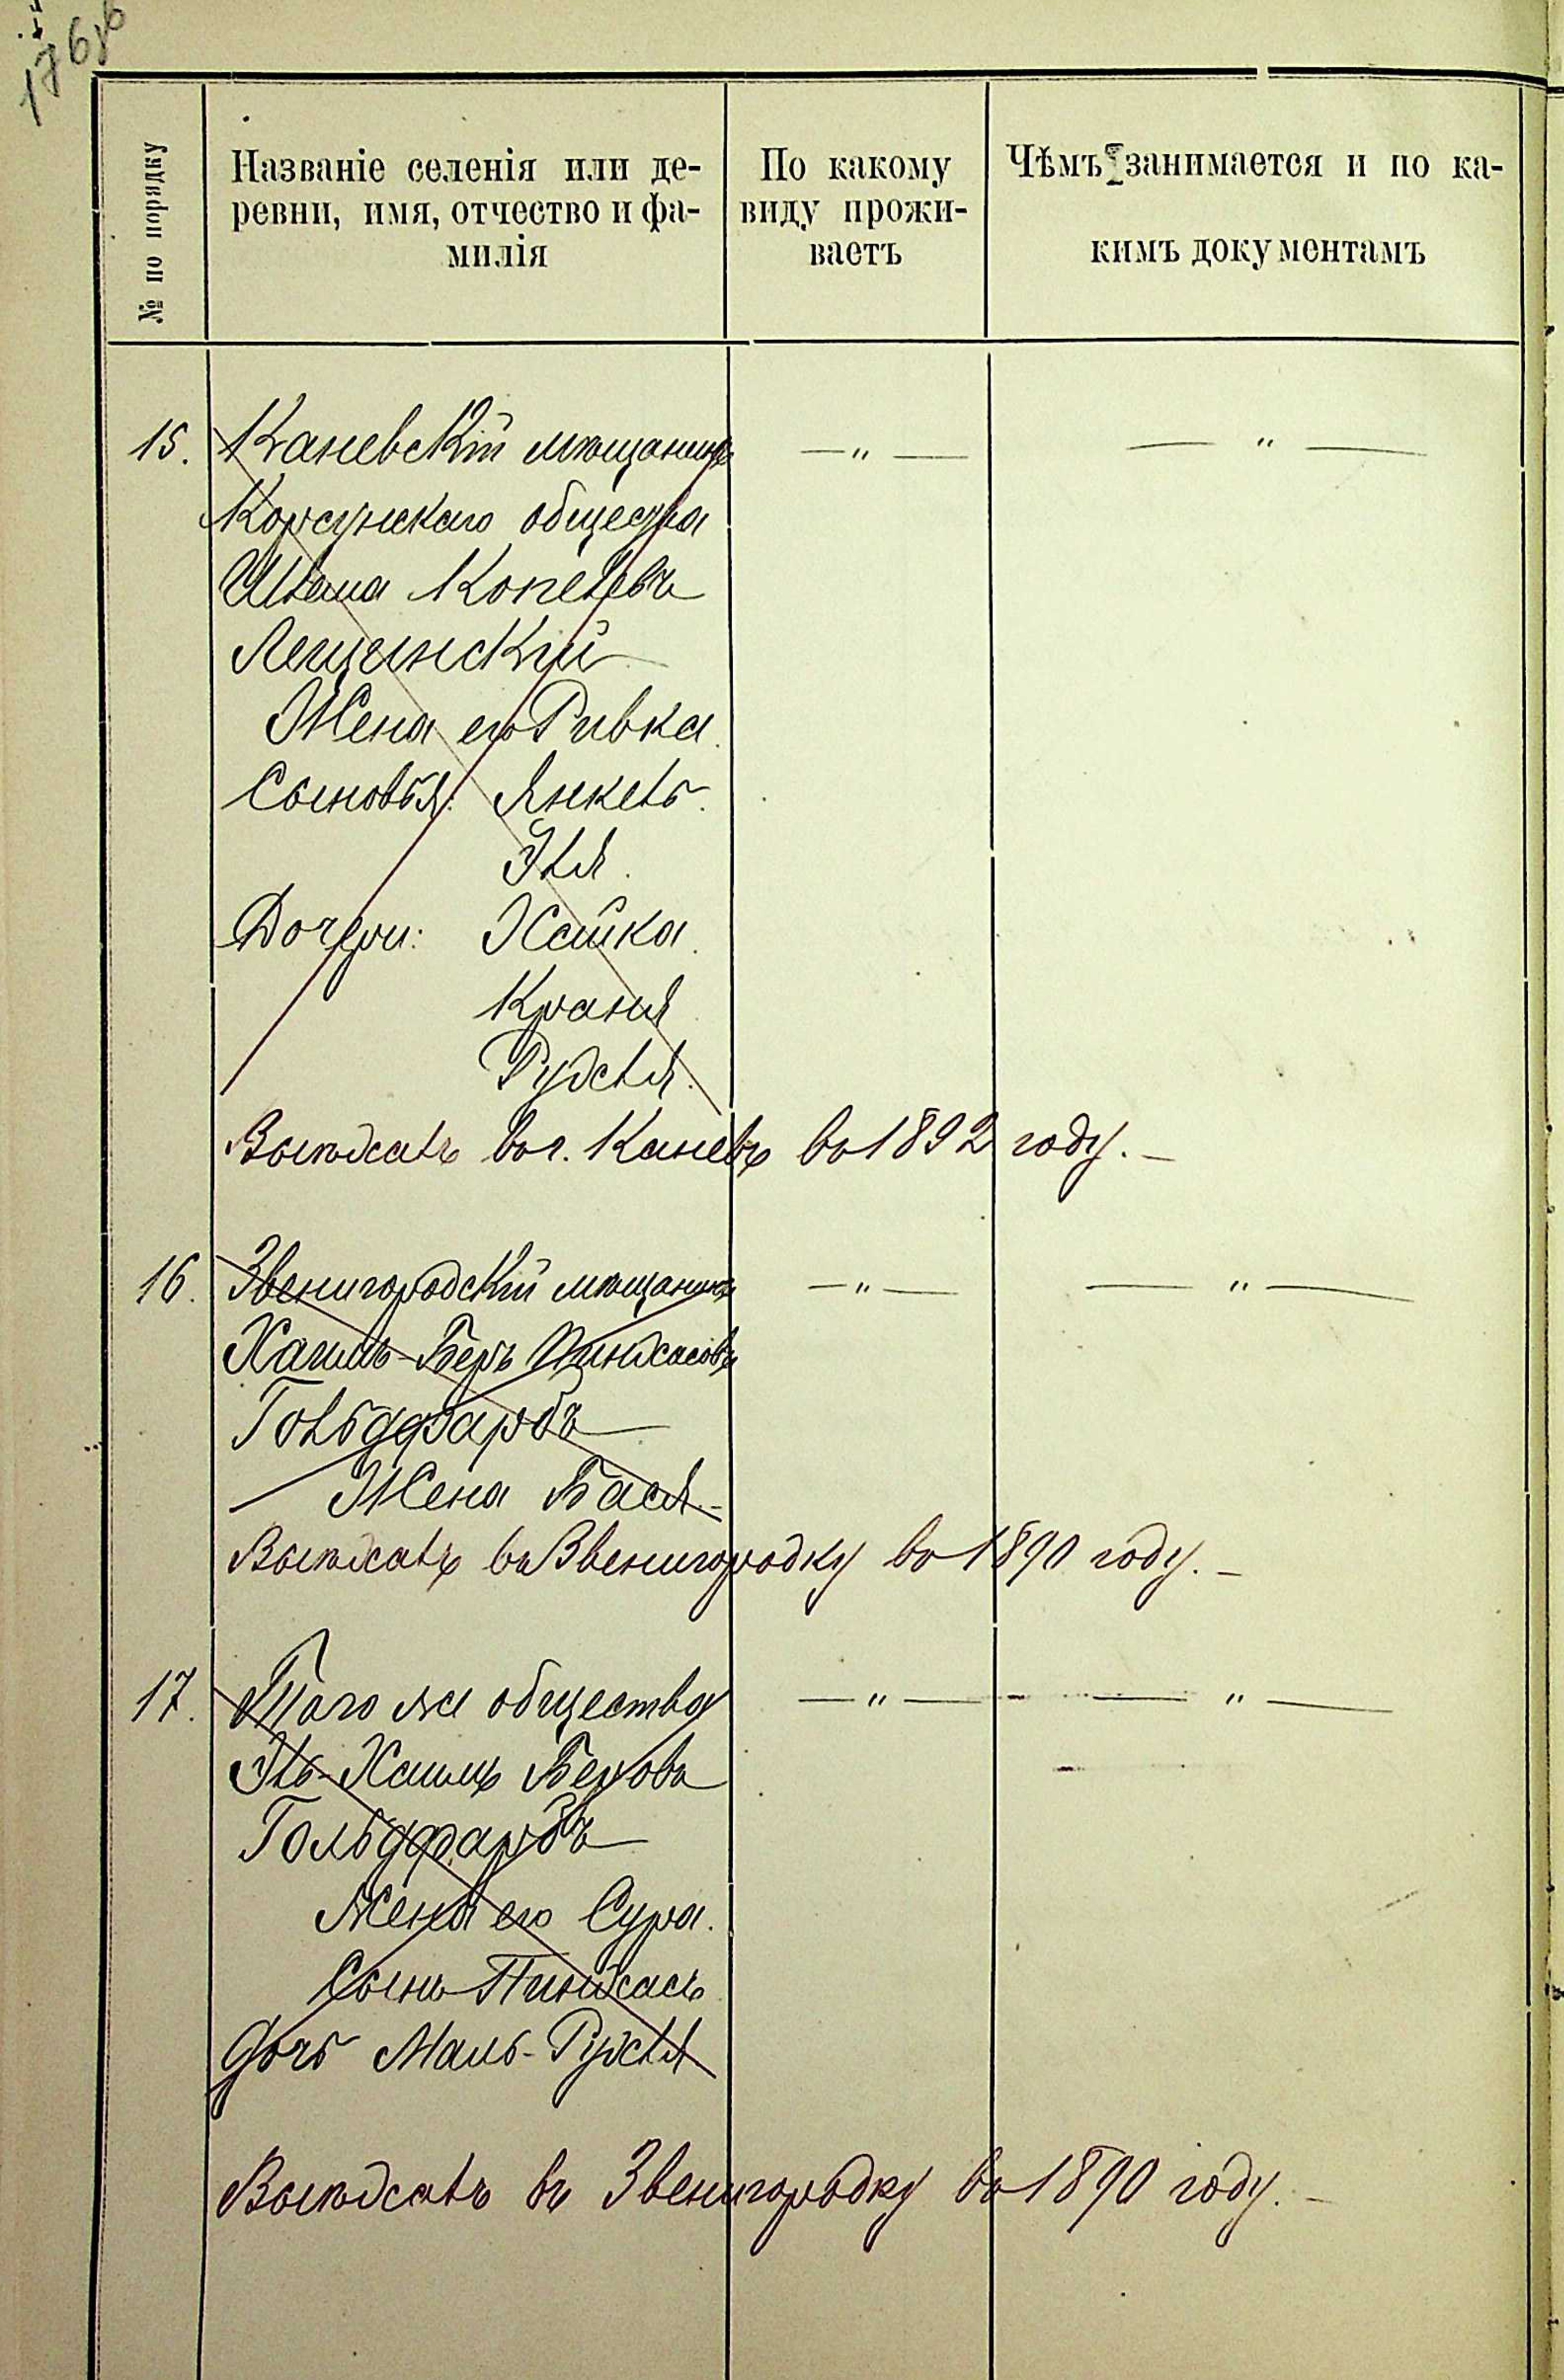 176об
№ по порядку
Названіе селенія или де-
ревни, имя, отчество и фа-
милія
По какому
виду прожи-
ваетъ
Чѣмъ занимается и по ка-
кимъ документамъ
15. Каневскій мѣщанинъ — „ — — „ —
Корсунскаго общества
Шлема Копелевъ
Лещинскій
Жена его Ривка.
Сыновья: Янкель.
Эля.
Дочери: Хайка.
Краня
Рухля.
Выѣхалъ въ г. Каневъ въ 1892 году. —
16. Звенигородскій мѣщанинъ — „ — — „ —
Хаимъ-Беръ Пинхасовъ
Гольдфарбъ
Жена Бася. –
Выѣхалъ въ Звенигородку въ 1890 году. –
17. Того же общества — „ — — „ —
Эль-Хаимъ Берковъ
Гольдфарбъ
Жена его Сура.
Сынъ Пинхасъ
Дочь Рухля
Выѣхалъ въ Звенигородку въ 1890 году. –